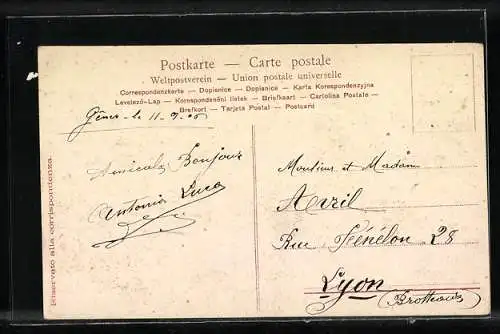 Postkarte — Carte postale
Weltpostverein — Union postale universelle
Correspondenzkarte — Dopisnice — Dopisnice — Karta Korespondenzyjna
Levelező-Lap — Korrespondenční lístek — Briefkaart — Cartolina Postale —
Brefkort — Tarjeta Postal — Postcard
Gênes le 11-9-05
Amicale Bonjour
Antonio Luca
Riservato alla corrispondenza.
Monsieur et Madame
Avril
Rue Fénélon 28
Lyon
(Brotteaux)